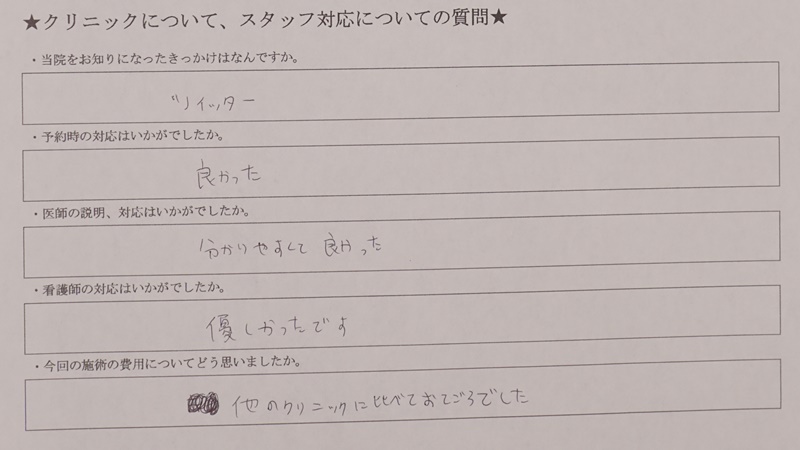 ★クリニックについて、スタッフ対応についての質問★
・当院をお知りになったきっかけはなんですか。
ツイッター
・予約時の対応はいかがでしたか。
良かった
・医師の説明、対応はいかがでしたか。
分かりやすくて良かった
・看護師の対応はいかがでしたか。
優しかったです
・今回の施術の費用についてどう思いましたか。
他のクリニックに比べておてごろでした